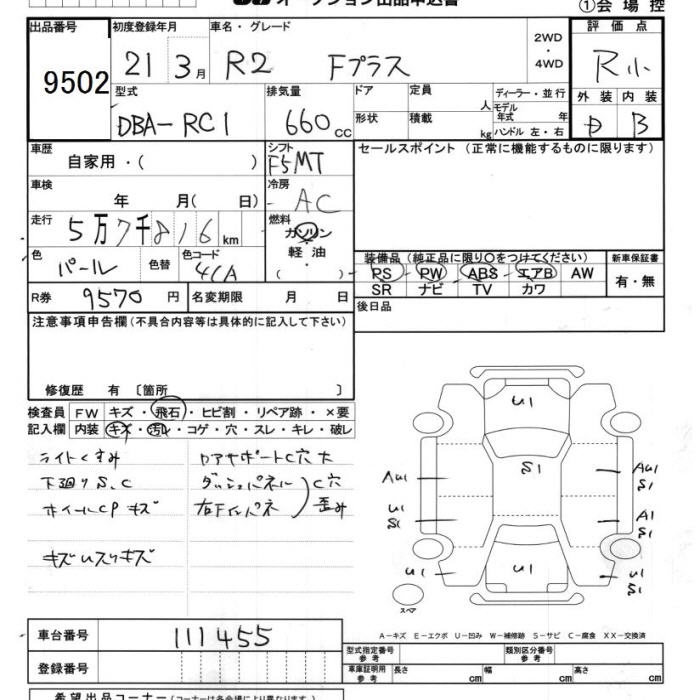 オークション出品申込書
①会場控
出品番号 初度登録年月 車名・グレード 評価点
9502 21 3月 R2 Fプラス 2WD・4WD R小
型式 排気量 ドア 定員 人 ディーラー・並行 外装 内装
DBA-RC1 660cc 形状 積載 kg モデル年式 年 ハンドル 左・右 D B
車歴 自家用・( ) シフト F5MT セールスポイント (正常に機能するものに限ります)
車検 年 月( 日) 冷房 AC
走行 5万7千816km 燃料 ガソリン・軽油・( )
色 パール 色替 色コード 4CA
装備品 (純正品に限り○をつけてください) 新車保証書
PS PW ABS エアB AW 有・無
SR ナビ TV カワ
R券 9570円 名変期限 月 日 後日品
注意事項申告欄 (不具合内容等は具体的に記入して下さい)
修復歴 有 〔箇所 〕
検査員 FW キズ・飛石・ヒビ割・リペア跡・×要
記入欄 内装 キズ・汚れ・コゲ・穴・スレ・キレ・破レ
ライトくすみ コアサポートC穴大
下廻りS、C ダッシュパネル C穴
ホイールCPキズ 右Fインパネ 歪み
キズUスリキズ
U1
S1
AU1 AU1
S1
U1 A1
S1 S1
U1 U1 U1
S1
スペア
A-キズ E-エクボ U-凹み W-補修跡 S-サビ C-腐食 XX-交換済
車台番号 111455
型式指定番号 参考 類別区分番号 参考
登録番号 車庫証明用 参考 長さ cm 幅 cm 高さ cm
希望出品コーナー (コーナーは各会場により異なります)